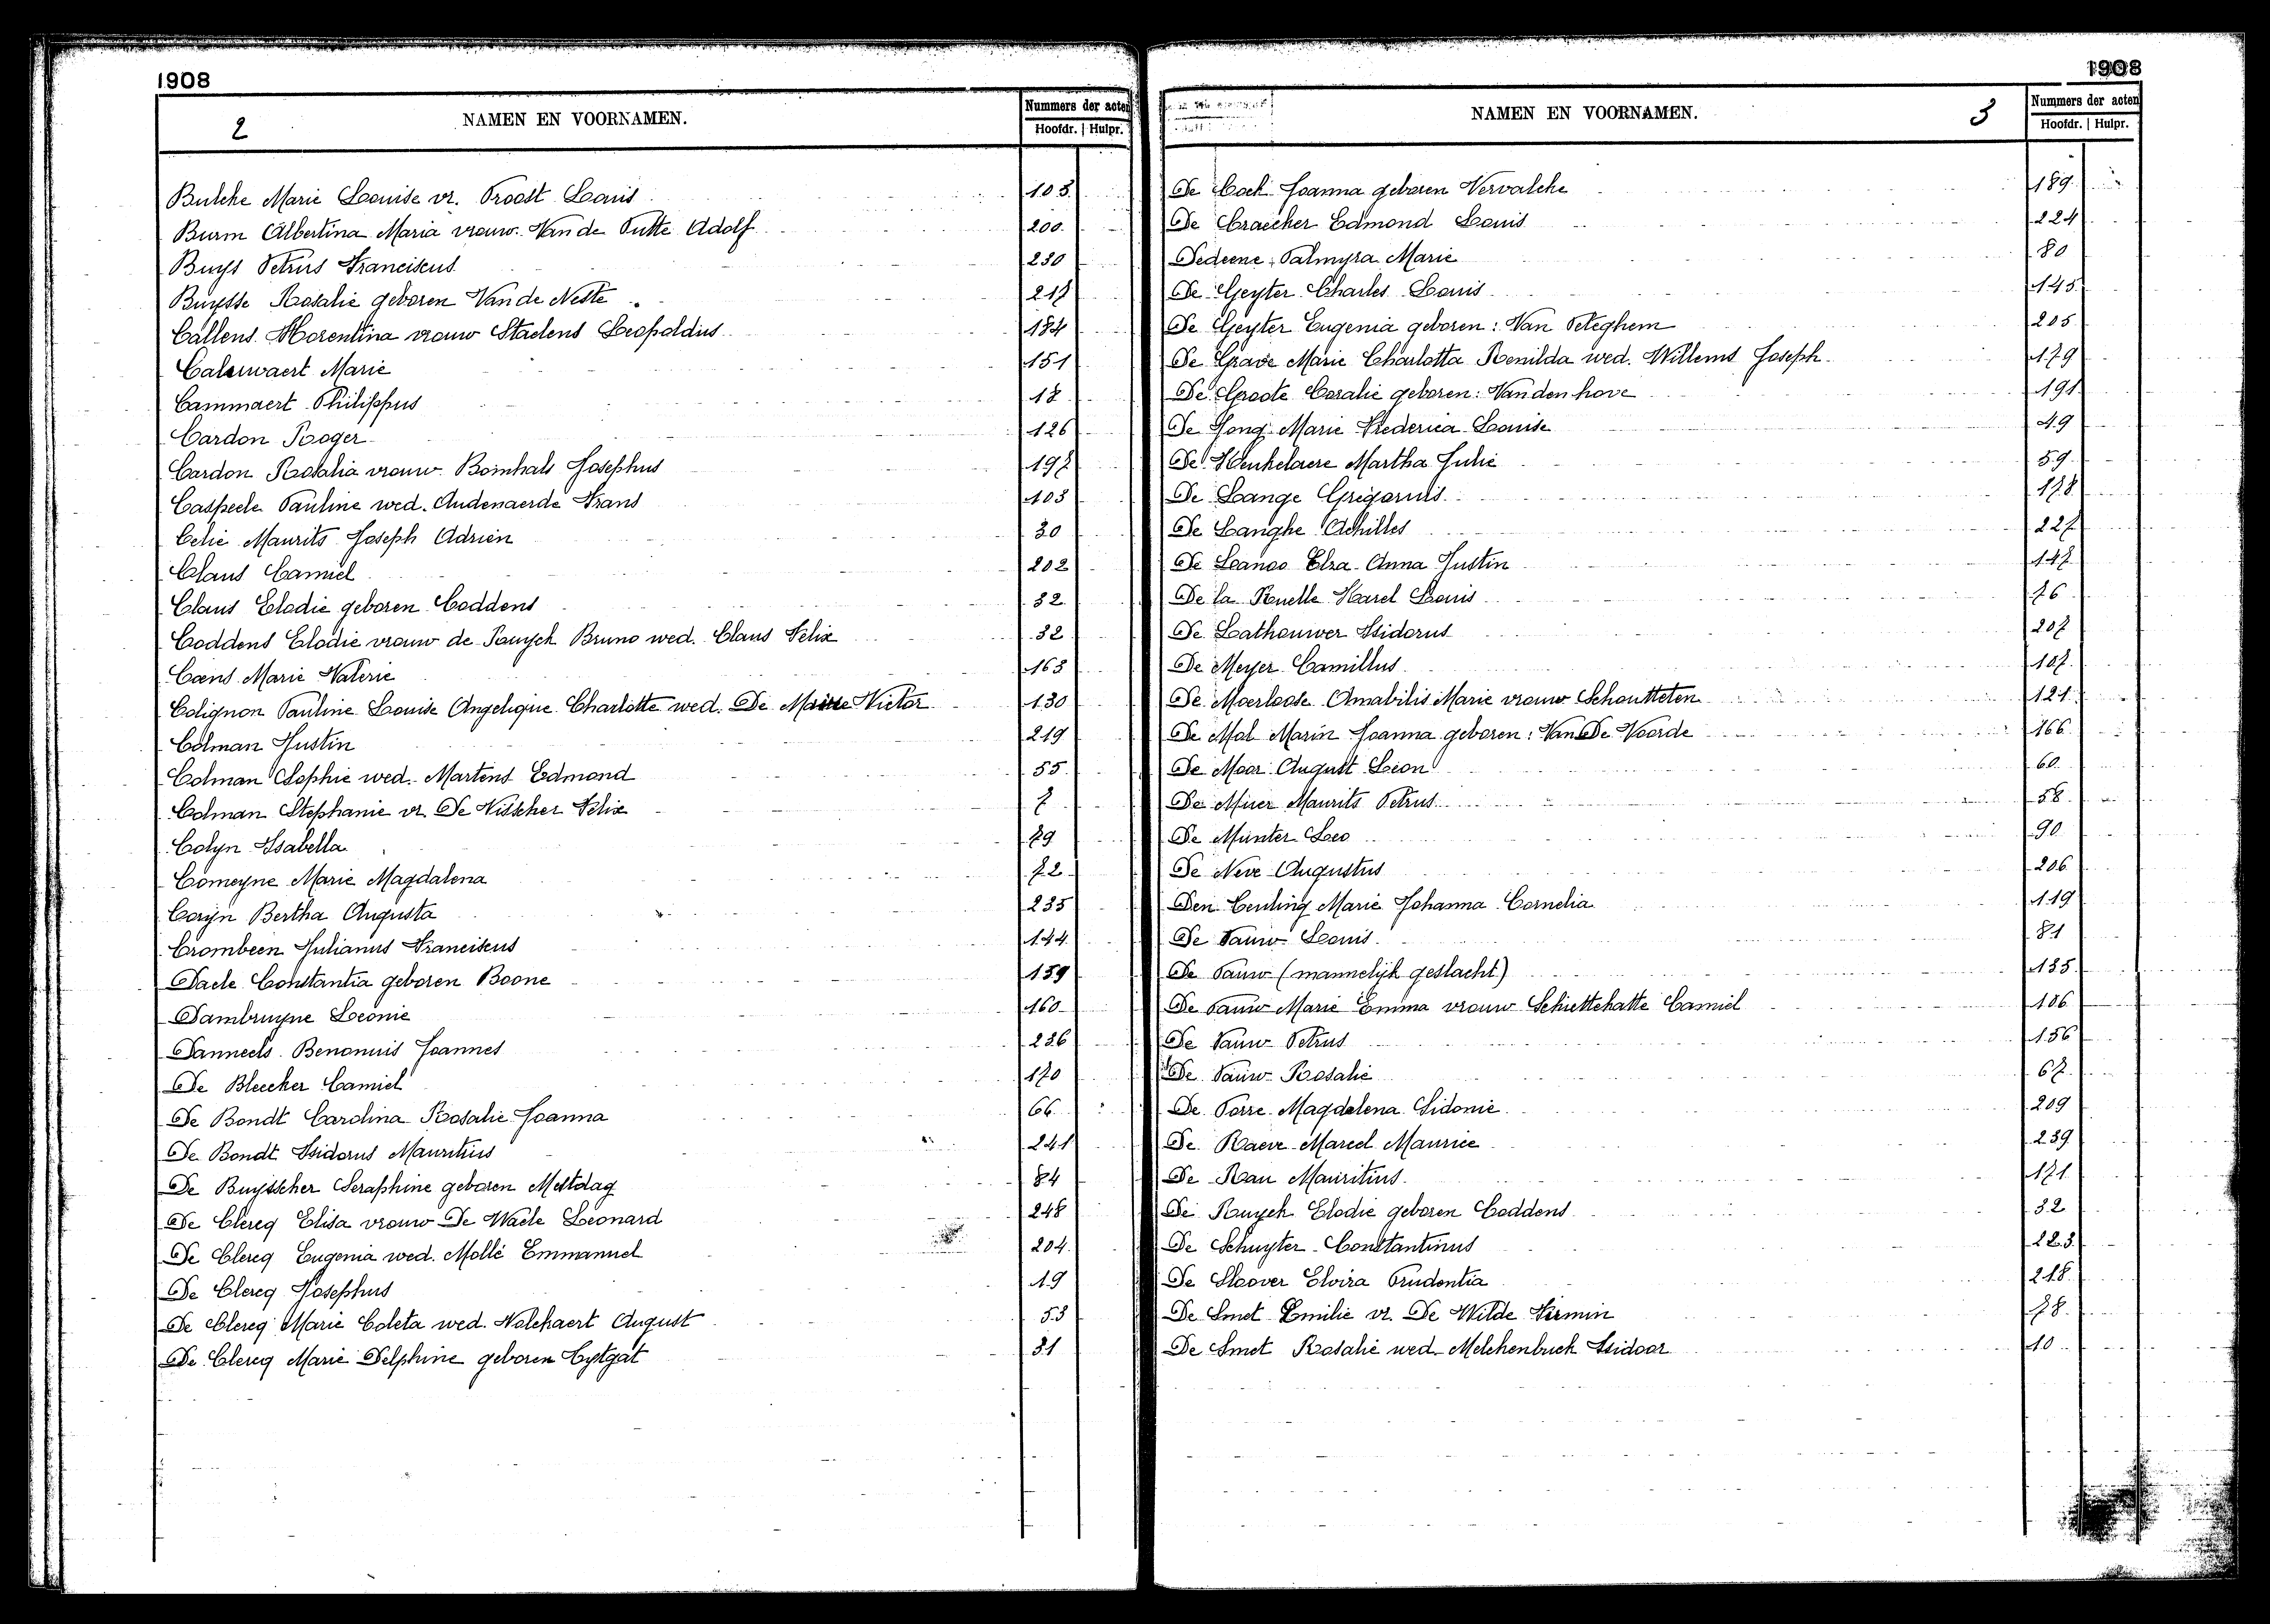 1908
2
NAMEN EN VOORNAMEN.
Nummers der acten
Hoofdr. | Hulpr.
Bulcke Marie Louise vr. Troost Louis 103
Burm Albertina Maria vrouw Van de Putte Adolf 200
Buyst Petrus Franciscus 230
Buysse Rosalie geboren Van de Neste 217
Callens Florentina vrouw Staelens Leopoldus 184
Caluwaert Marie 151
Cammaert Philippus 18
Cardon Roger 126
Cardon Rosalia vrouw Bomhals Josephus 197
Caspeele Pauline wed. Audenaerde Frans 103
Celie Maurits Joseph Adrien 30
Claus Camiel 202
Claus Elodie geboren Coddens 32
Coddens Elodie vrouw de Ruyck Bruno wed. Claus Felix 32
Coens Marie Valerie 163
Colignon Pauline Louise Angelique Charlotte wed. De Victor 130
Colman Justin 219
Colman Sophie wed. Martens Edmond 55
Colman Stephanie vr. De Visscher Felix 7
Colyn Isabella 79
Comeyne Marie Magdalena 72
Coryn Bertha Augusta 235
Crombeen Julianus Franciscus 144
Daele Constantia geboren Boone 139
Dambruyne Leonie 160
Danneels Benonuis Joannes 236
De Bleecker Camiel 170
De Bondt Carolina Rosalie Joanna 66
De Bondt Isidorus Mauritius 241
De Buysscher Seraphine geboren Mestdag 84
De Clercq Elisa vrouw De Waele Leonard 248
De Clercq Eugenia wed. Mollé Emmanuel 204
De Clercq Josephus 19
De Clercq Marie Coleta wed. Nolckaert August 53
De Clercq Marie Delphine geboren Cystgat 31
1908
NAMEN EN VOORNAMEN.
3
Nummers der acten
Hoofdr. | Hulpr.
De Cock Joanna geboren Vervalcke 189
De Craecker Edmond Louis 224
Dedeene Palmyra Marie 80
De Geyter Charles Louis 145
De Geyter Eugenia geboren: Van Peteghem 205
De Grave Marie Charlotta Romilda wed. Willems Joseph 179
De Groote Coralie geboren: Vanden hove 191
De Jong Marie Frederica Louise 49
De Keukelaere Martha Julie 59
De Lange Grigoruis 178
De Langhe Achilles 227
De Lanoo Elza Anna Justin 147
De la Ruelle Karel Louis 76
De Lathouwer Isidorus 207
De Meyer Camillus 107
De Moerloose Amabilis Marie vrouw Schoutteten 121
De Mol Marin Joanna geboren: Van De Voorde 166
De Moor August Leon 60
De Muer Maurits Petrus 58
De Munter Leo 90
De Neve Augustus 206
Den Ceuling Marie Johanna Cornelia 119
De Pauw Louis 81
De Pauw (mannelijk geslacht) 135
De Pauw Marie Emma vrouw Schiettekatte Camiel 106
De Pauw Petrus 156
De Pauw Rosalie 67
De Porre Magdalena Sidonie 209
De Raeve Marcel Maurice 239
De Rau Mauritius 171
De Ruyck Elodie geboren Coddens 32
De Schuyter Constantinus 223
De Sloover Elvira Prudentia 218
De Smet Emilie vr. De Wilde Firmin 78
De Smet Rosalie wed. Melckenbuck Isidoor 10